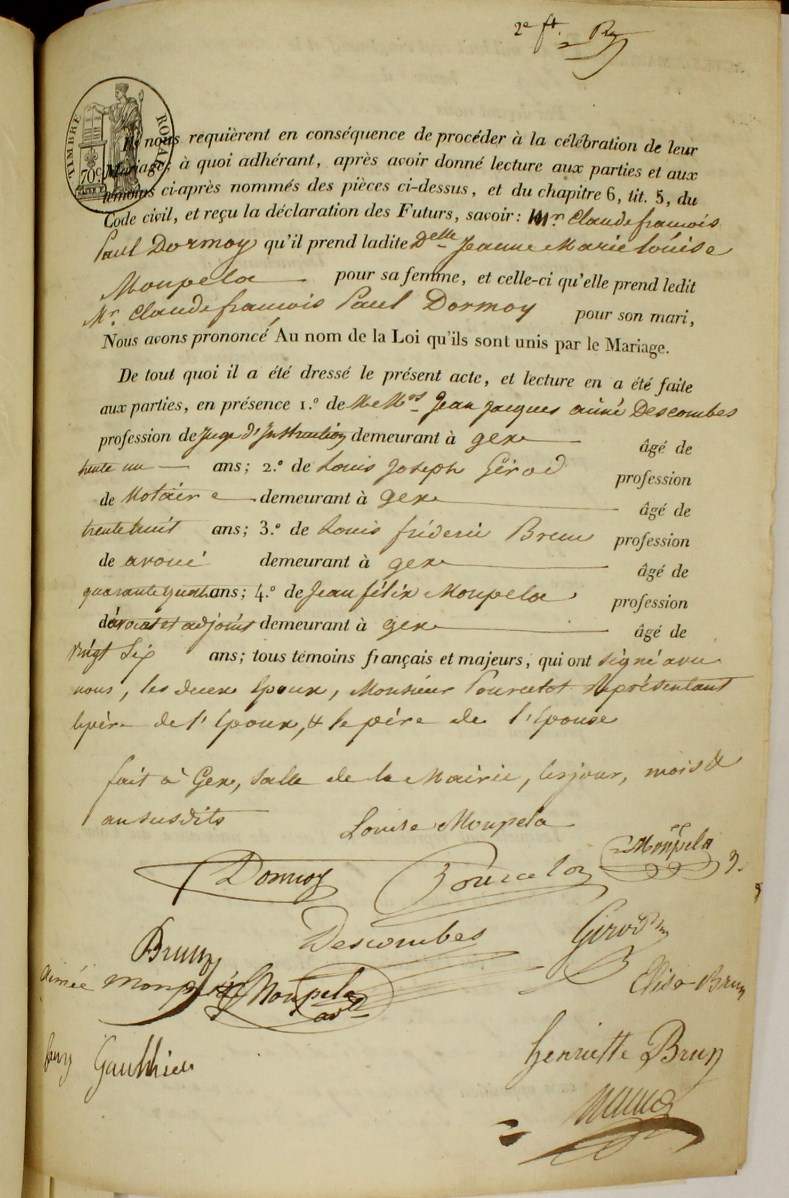 2e ft.
TIMBRE ROYAL
70c.
nous requièrent en conséquence de procéder à la célébration de leur
Mariage; à quoi adhérant, après avoir donné lecture aux parties et aux
témoins ci-après nommés des pièces ci-dessus, et du chapitre 6, tit. 5, du
Code civil, et reçu la déclaration des Futurs, savoir: Mr Claude françois
Paul Dormoy qu'il prend ladite Delle Jeanne Marie Louise
Monpela pour sa femme, et celle-ci qu'elle prend ledit
Mr. Claude françois Paul Dormoy pour son mari,
Nous avons prononcé Au nom de la Loi qu'ils sont unis par le Mariage.
De tout quoi il a été dressé le présent acte, et lecture en a été faite
aux parties, en présence 1.° de Jean Jacques aimé Descombes
profession de Juge d'Instruction demeurant à gex âgé de
trente un ans; 2.° de Louis Joseph Girod profession
de Notaire demeurant à gex âgé de
trente huit ans; 3.° de Louis fréderic Brun profession
de avoué demeurant à gex âgé de
quarante ans; 4.° de Jean félix Monpela profession
d'avocat et adjoint demeurant à gex âgé de
vingt Six ans; tous témoins français et majeurs, qui ont signé avec
nous, les deux Epoux, Monsieur Pourcelot représentant
le père de l'Epoux, & le père de l'Epouse
fait à Gex, Salle de la Mairie, les jour, mois &
an susdits
Louise Monpela
Dormoy Pourcelot Monpela
Brun Descombes Girod
aimée Monpela Monpela Elisa Brun
fany Gauthier
henriette Brun